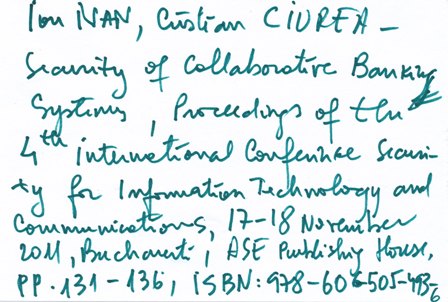 Ion IVAN, Cristian CIUREA –
Security of Collaborative Banking
Systems, Proceedings of the
4th International Conference Securi-
ty for Information Technology and
Communications, 17-18 November
2011, Bucharest, ASE Publishing House,
PP. 131 - 136, ISBN: 978-606-505-493-6